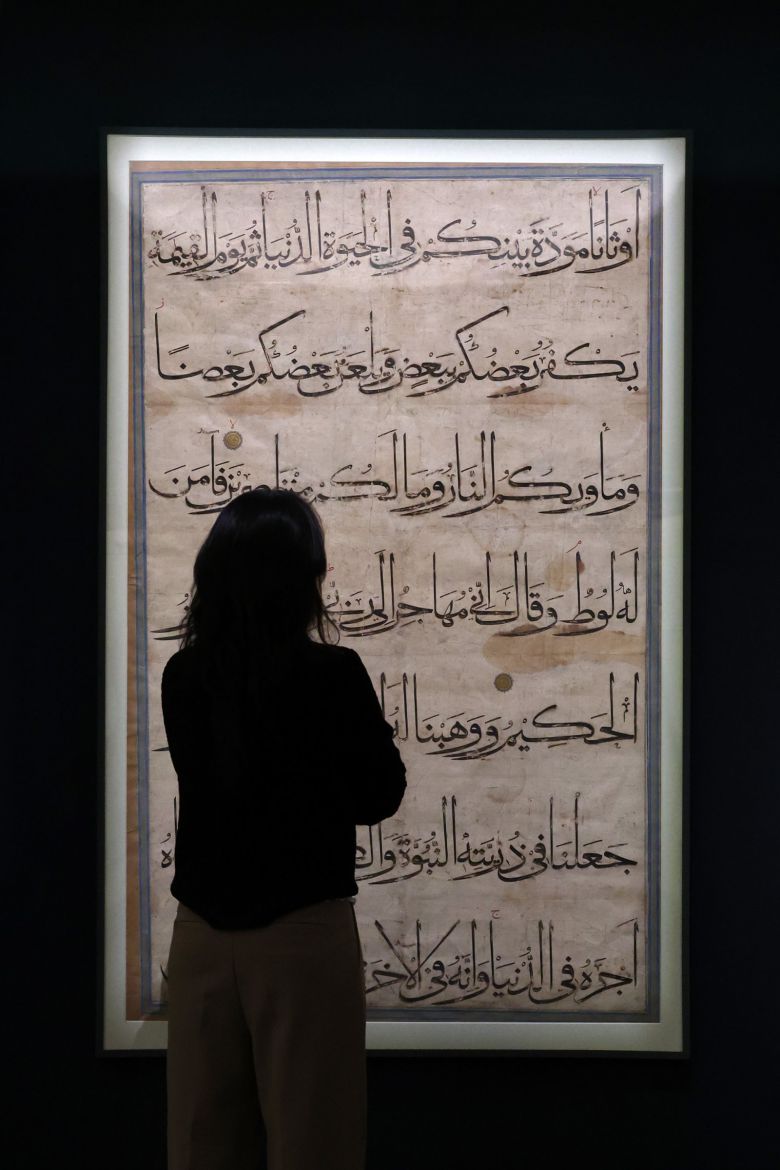 أَوْثَانًا مَوَدَّةَ بَيْنِكُمْ فِي الْحَيٰوةِ الدُّنْيَا ثُمَّ يَوْمَ الْقِيٰمَةِ
يَكْفُرُ بَعْضُكُمْ بِبَعْضٍ وَيَلْعَنُ بَعْضُكُمْ بَعْضًا
وَمَأْوٰيكُمُ النَّارُ وَمَا لَكُمْ مِنْ نَاصِرِينَ فَآمَنَ
لَهُ لُوطٌ وَقَالَ إِنِّي مُهَاجِرٌ إِلَى رَبِّي
الْحَكِيمُ وَوَهَبْنَا لَهُ
جَعَلْنَا فِي ذُرِّيَّتِهِ النُّبُوَّةَ
أَجْرَهُ فِي الدُّنْيَا وَإِنَّهُ فِي الْاٰخِرَةِ